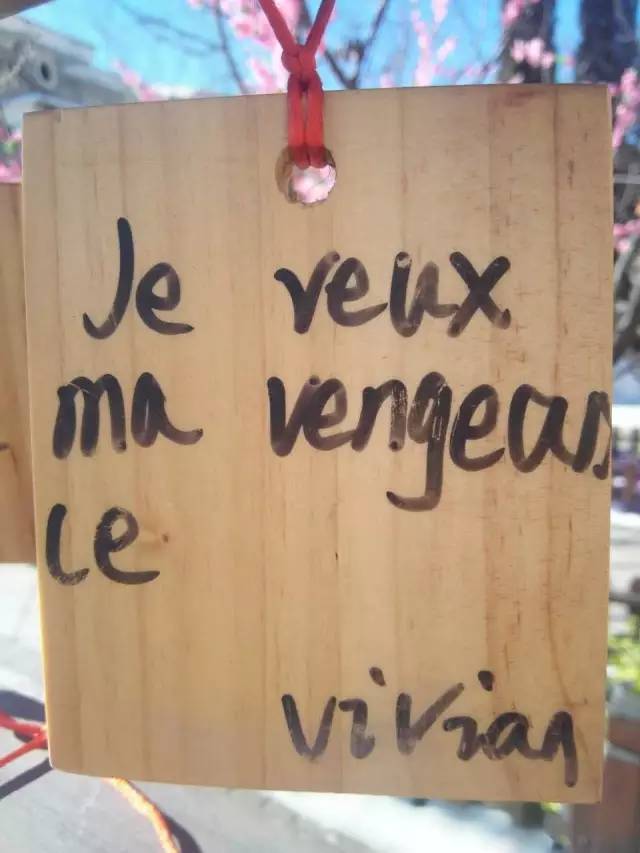 Je veux
ma vengean
ce
vivian